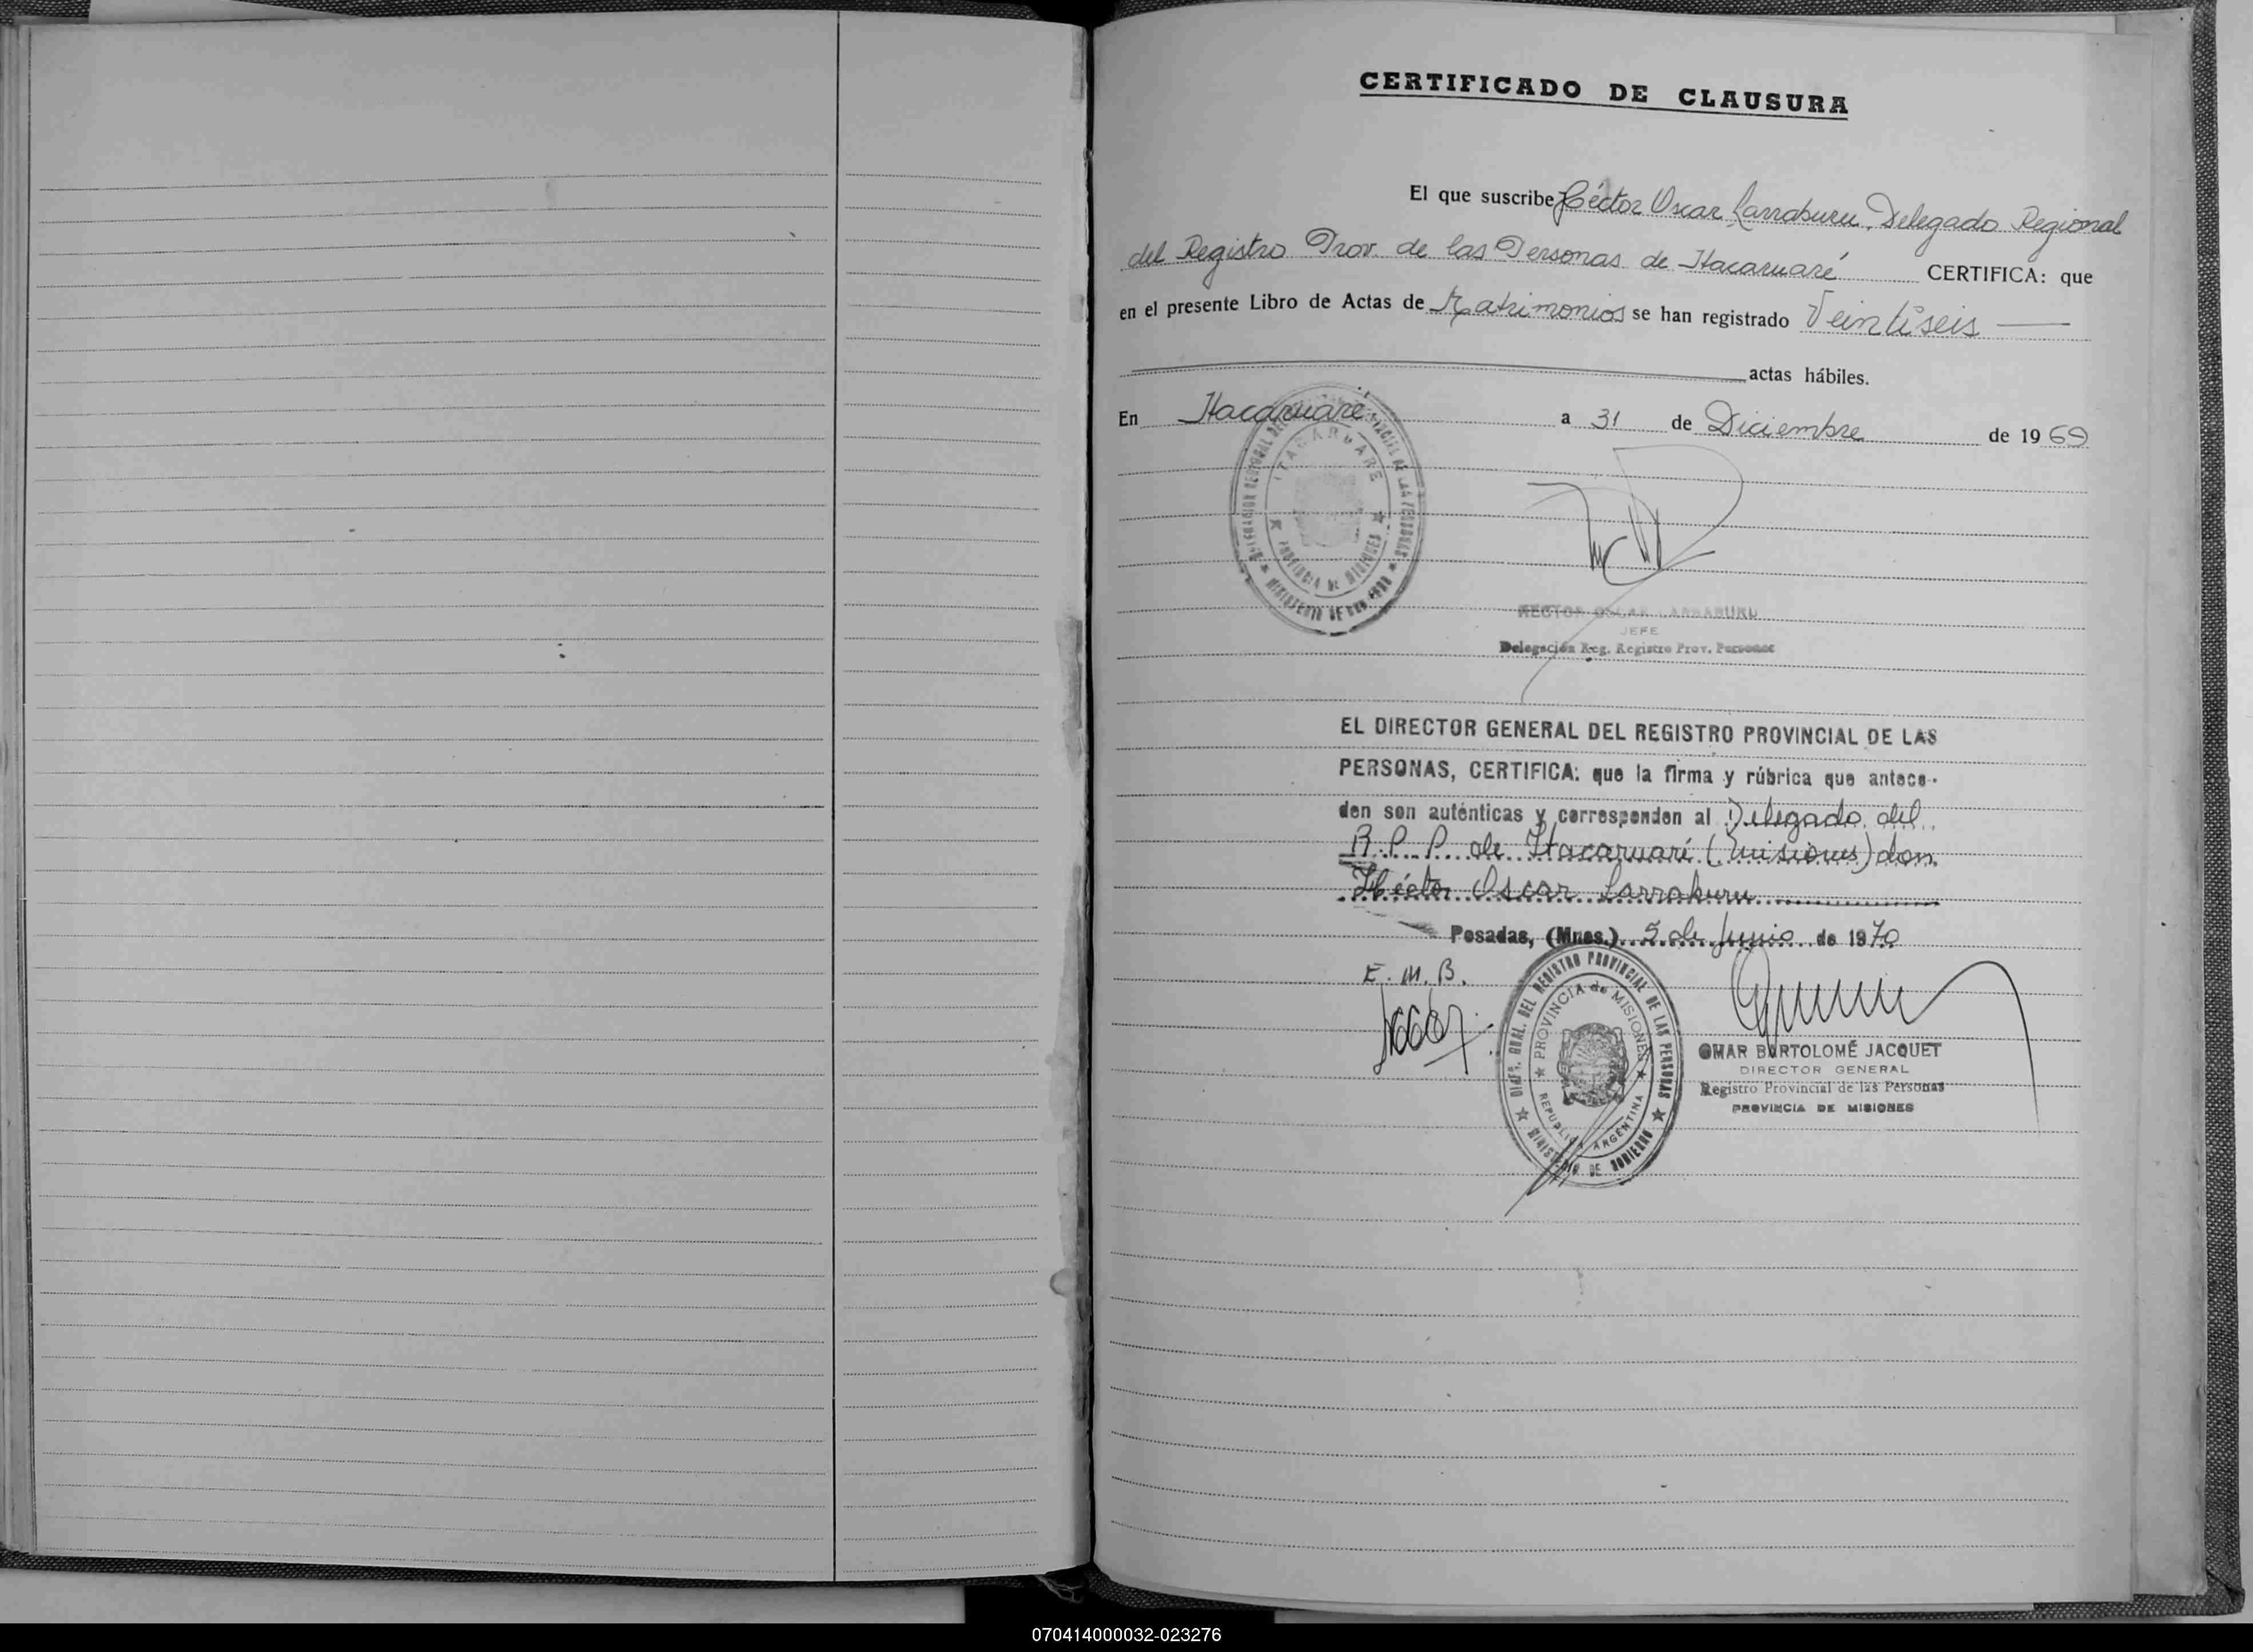 CERTIFICADO DE CLAUSURA
El que suscribe Héctor Oscar Larraburu, Delegado Regional
del Registro Prov. de las Personas de Itacaruaré CERTIFICA: que
en el presente Libro de Actas de Matrimonios se han registrado Veintiseis
actas hábiles.
En Itacaruaré a 31 de Diciembre de 1969
ITACARUARE
PROVINCIA DE MISIONES
HECTOR OSCAR LARRABURU
JEFE
Delegación Reg. Registro Prov. Personas
EL DIRECTOR GENERAL DEL REGISTRO PROVINCIAL DE LAS
PERSONAS, CERTIFICA: que la firma y rúbrica que antece-
den son auténticas y corresponden al Delegado del
R.P.P. de Itacaruaré (Misiones) don
Héctor Oscar Larraburu
Posadas, (Mnes.) 5 de Junio de 1970
E. M. B.
DIREC. GRAL. DEL REGISTRO PROVINCIAL DE LAS PERSONAS
PROVINCIA de MISIONES
REPUBLICA ARGENTINA
MINISTERIO DE GOBIERNO
OMAR BARTOLOMÉ JACQUET
DIRECTOR GENERAL
Registro Provincial de las Personas
PROVINCIA DE MISIONES
070414000032-023276